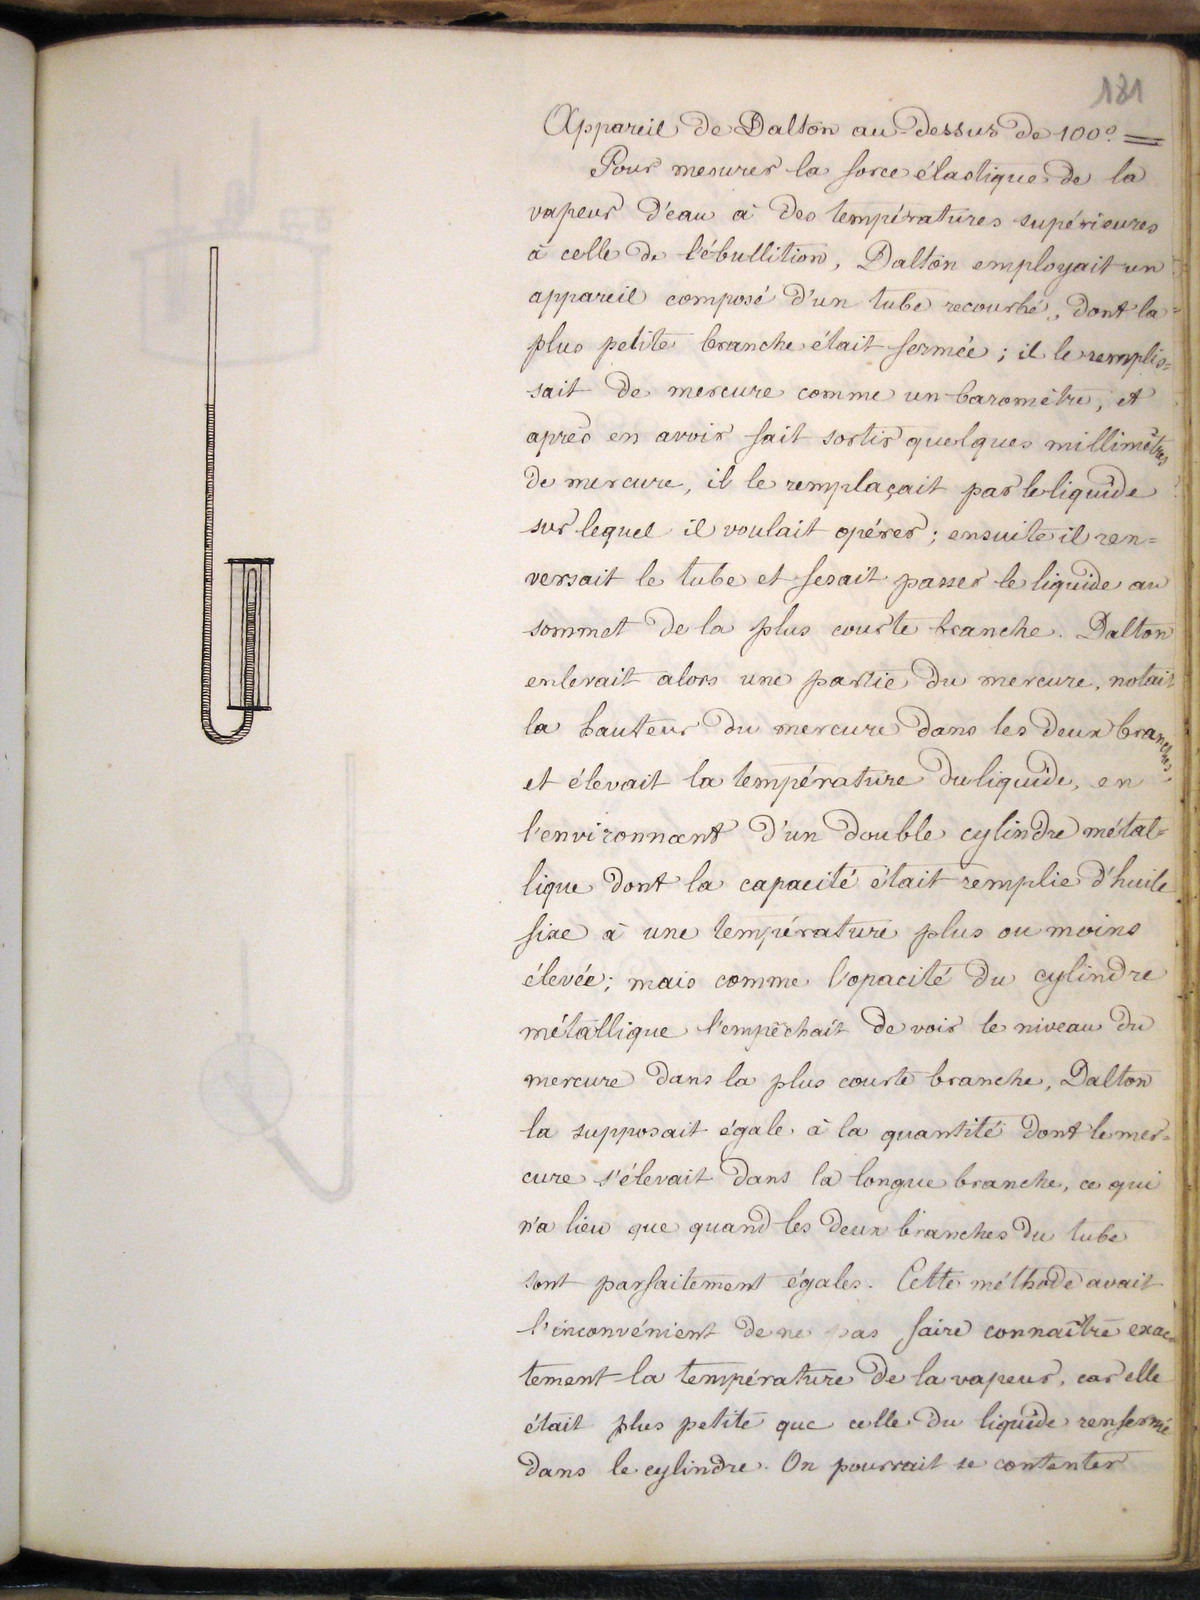 181
Appareil de Dalton au dessus de 100° =
Pour mesurer la force élastique de la
vapeur d'eau à des températures supérieures
à celle de l'ébullition, Dalton employait un
appareil composé d'un tube recourbé, dont la
plus petite branche était fermée ; il le remplis=
sait de mercure comme un baromètre, et
après en avoir fait sortir quelques millimètres
de mercure, il le remplaçait par le liquide
sur lequel il voulait opérer ; ensuite il ren=
versait le tube et fesait passer le liquide au
sommet de la plus courte branche. Dalton
enlevait alors une partie du mercure, notait
la hauteur du mercure dans les deux branches,
et élevait la température du liquide, en
l'environnant d'un double cylindre métal=
lique dont la capacité était remplie d'huile
fixe à une température plus ou moins
élevée ; mais comme l'opacité du cylindre
métallique l'empêchait de voir le niveau du
mercure dans la plus courte branche, Dalton
la supposait égale à la quantité dont le mer=
cure s'élevait dans la longue branche, ce qui
n'a lieu que quand les deux branches du tube
sont parfaitement égales. Cette méthode avait
l'inconvénient de ne pas faire connaître exac=
tement la température de la vapeur, car elle
était plus petite que celle du liquide renfermé
dans le cylindre. On pourrait se contenter